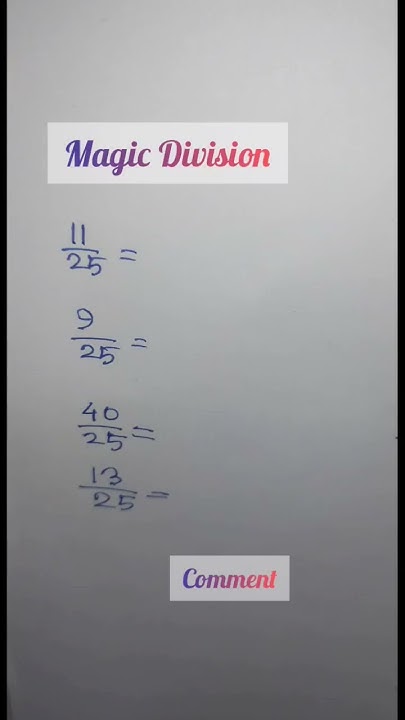 Magic Division
11/25 =
9/25 =
40/25 =
13/25 =
Comment